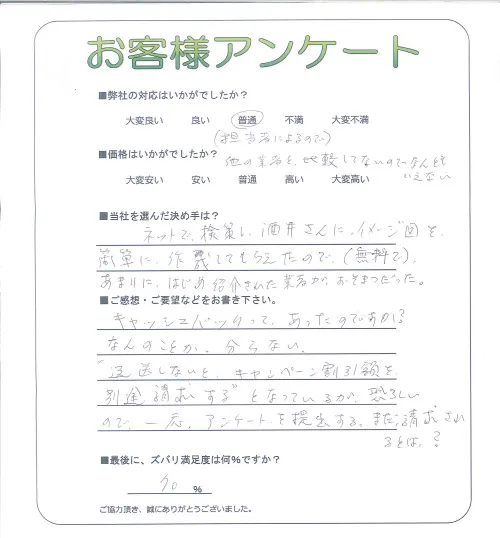 お客様アンケート
■弊社の対応はいかがでしたか?
大変良い 良い 普通 不満 大変不満
(担当者によるので)
■価格はいかがでしたか? 他の業者と、比較してないのでなんとも
いえない
大変安い 安い 普通 高い 大変高い
■当社を選んだ決め手は?
ネットで、検策し、酒井さんに、イメージ図を、
簡単に、作成してもらえたので、(無料で)、
あまりに、はじめ紹介された業者が、おそまつだった。
■ご感想・ご要望などをお書き下さい。
キャッシュバックって、あったのですか?
なんのことか、分らない。
"返送しないと、キャンペーン割引額を、
別途請求する"となっているが、恐ろしい
ので、一応、アンケートを提出する。まだ請求され
るとは、?
■最後に、ズバリ満足度は何%ですか?
70 %
ご協力頂き、誠にありがとうございました。